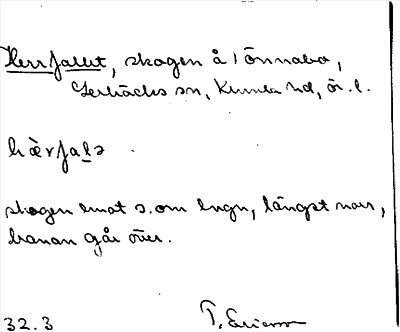 Herrfallet, skogen å 1 Önnabo,
Lerbäcks sn, Kumla hd, ör. l.
hærfalə
skogen emot s. om lngn, längst norr,
banan går över.
32.3 T. Ericsson